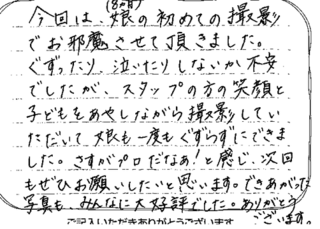 (8ヶ月)
今回は、娘の初めての撮影
でお邪魔させて頂きました。
ぐずったり、泣いたりしないか不安
でしたが、スタップの方の笑顔と
子どもをあやしながら撮影してい
ただいて娘も一度もぐずらずにできま
した。さすがプロだなあ!と感じ、次回
もぜひお願いしたいと思います。できあがった
写真も、みんなに大好評でした。ありがとう
ございます。
ご記入いただきありがとうございます